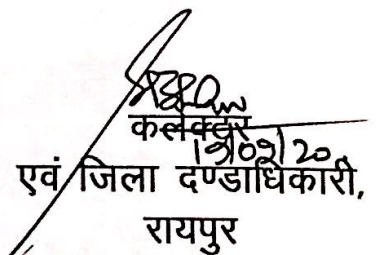 कलेक्टर
19/09/20
एवं जिला दण्डाधिकारी,
रायपुर